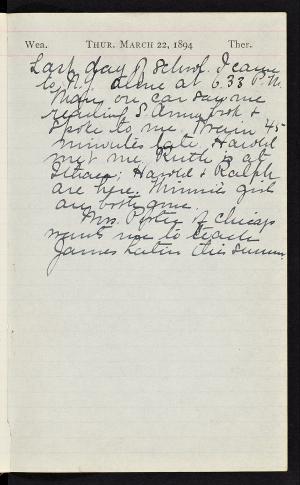 Wea. THUR. MARCH 22, 1894 Ther.
Last day of school. I came
to N.Y. alone at 6.33 P.M.
Man on car saw me
reading S. Anny book &
spoke to me. Train 45
minutes late. Harold
met me. Ruth is at
Ithaca; Harold & Ralph
are here. Minnie's girls
are both gone.
Mrs. Porter of Chicago
wants me to teach
James Latin this summer